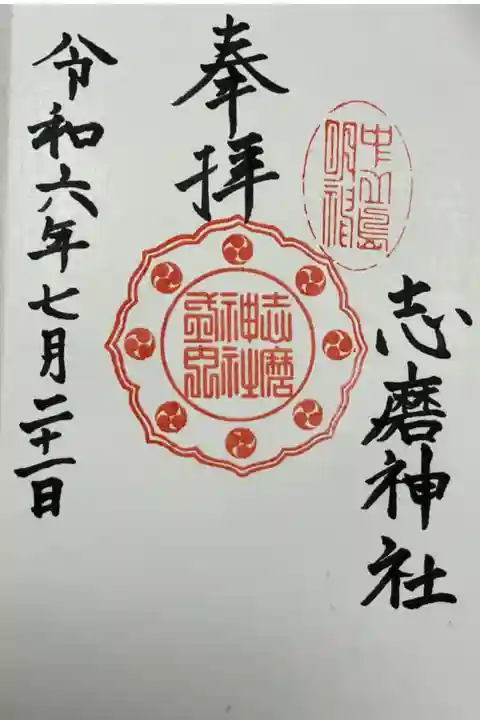 中嶌明神
志磨神社
奉拝
志磨
神社
令和六年七月二十一日